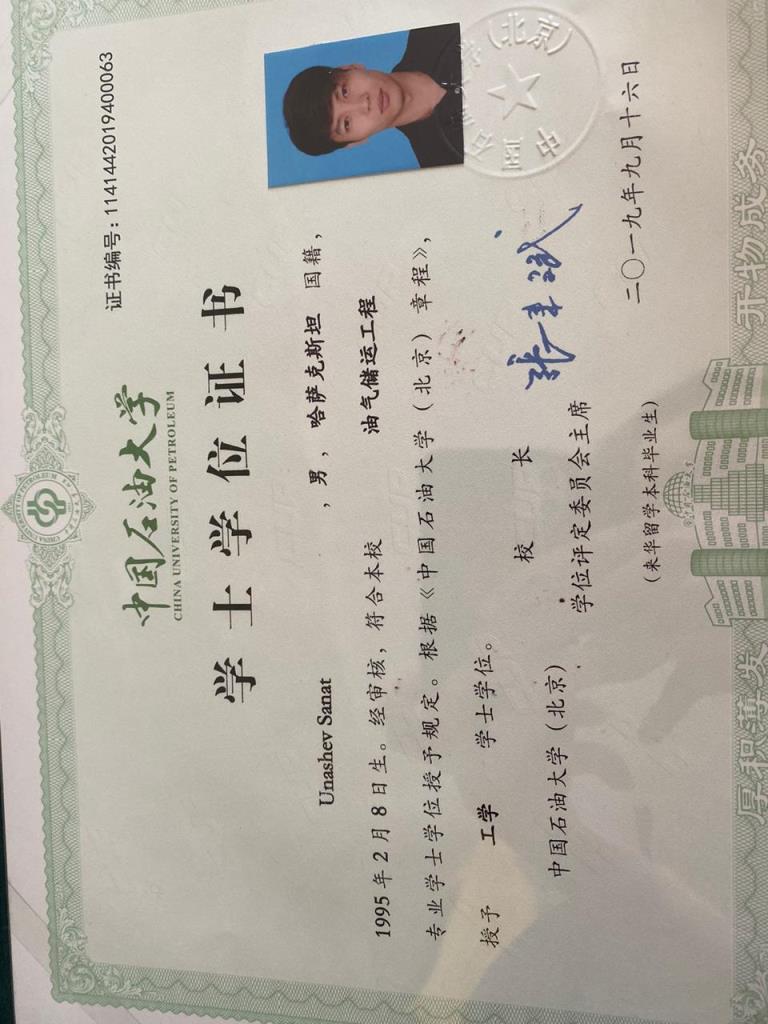 证书编号：1141442019400063
中国石油大学
CHINA UNIVERSITY OF PETROLEUM
学士学位证书
Unashev Sanat ，男，哈萨克斯坦 国籍，
1995年2月8日生。经审核，符合本校 油气储运工程
专业学士学位授予规定。根据《中国石油大学（北京）章程》，
授予 工学 学士学位。
校 长
中国石油大学（北京） 学位评定委员会主席
二〇一九年九月十六日
（来华留学本科毕业生）
厚积薄发 开物成务